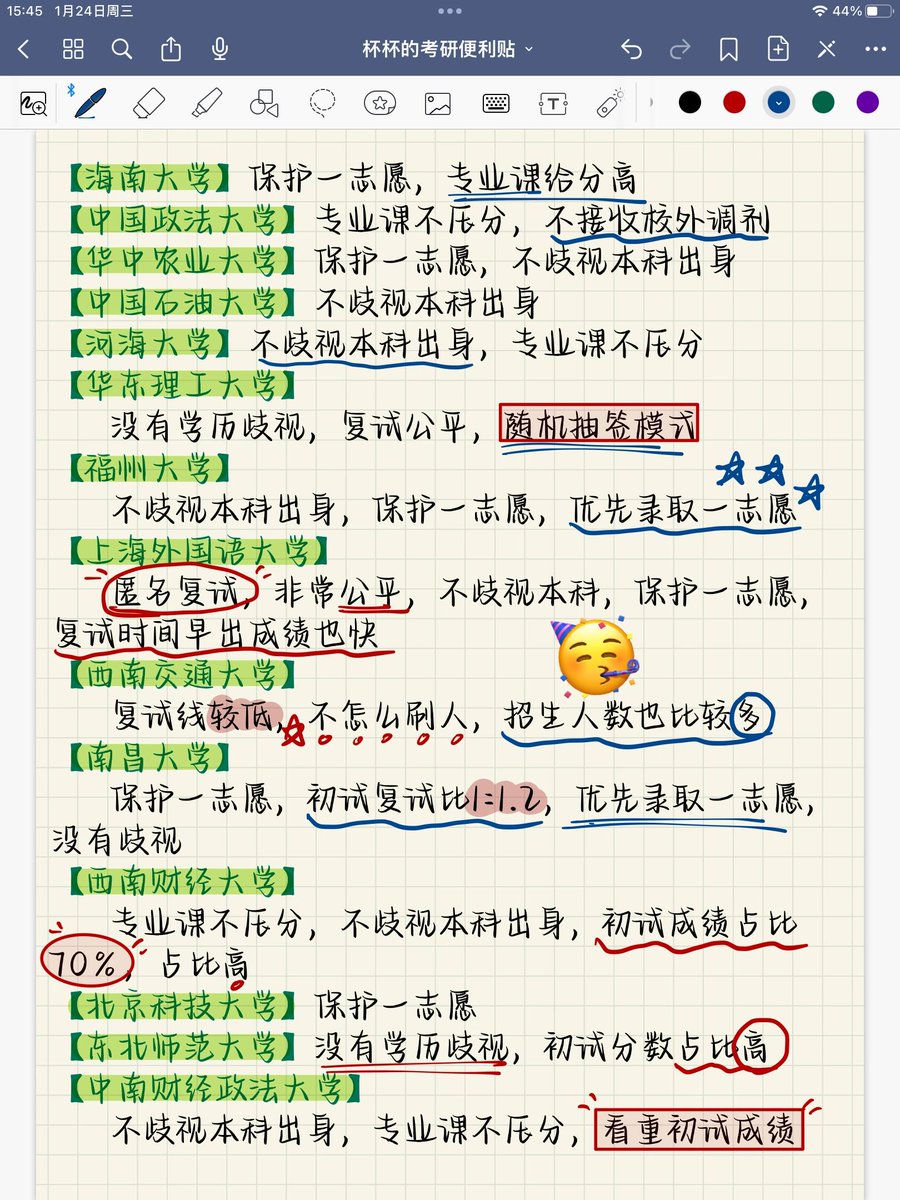 15:45 1月24日周三 44%
杯杯的考研便利贴
T
【海南大学】保护一志愿，专业课给分高
【中国政法大学】专业课不压分，不接收校外调剂
【华中农业大学】保护一志愿，不歧视本科出身
【中国石油大学】不歧视本科出身
【河海大学】不歧视本科出身，专业课不压分
【华东理工大学】
没有学历歧视，复试公平，随机抽签模式
【福州大学】
不歧视本科出身，保护一志愿，优先录取一志愿
【上海外国语大学】
匿名复试，非常公平，不歧视本科，保护一志愿，
复试时间早出成绩也快
【西南交通大学】
复试线较低，不怎么刷人，招生人数也比较多
【南昌大学】
保护一志愿，初试复试比1:1.2，优先录取一志愿，
没有歧视
【西南财经大学】
专业课不压分，不歧视本科出身，初试成绩占比
70%，占比高
【北京科技大学】保护一志愿
【东北师范大学】没有学历歧视，初试分数占比高
【中南财经政法大学】
不歧视本科出身，专业课不压分，看重初试成绩